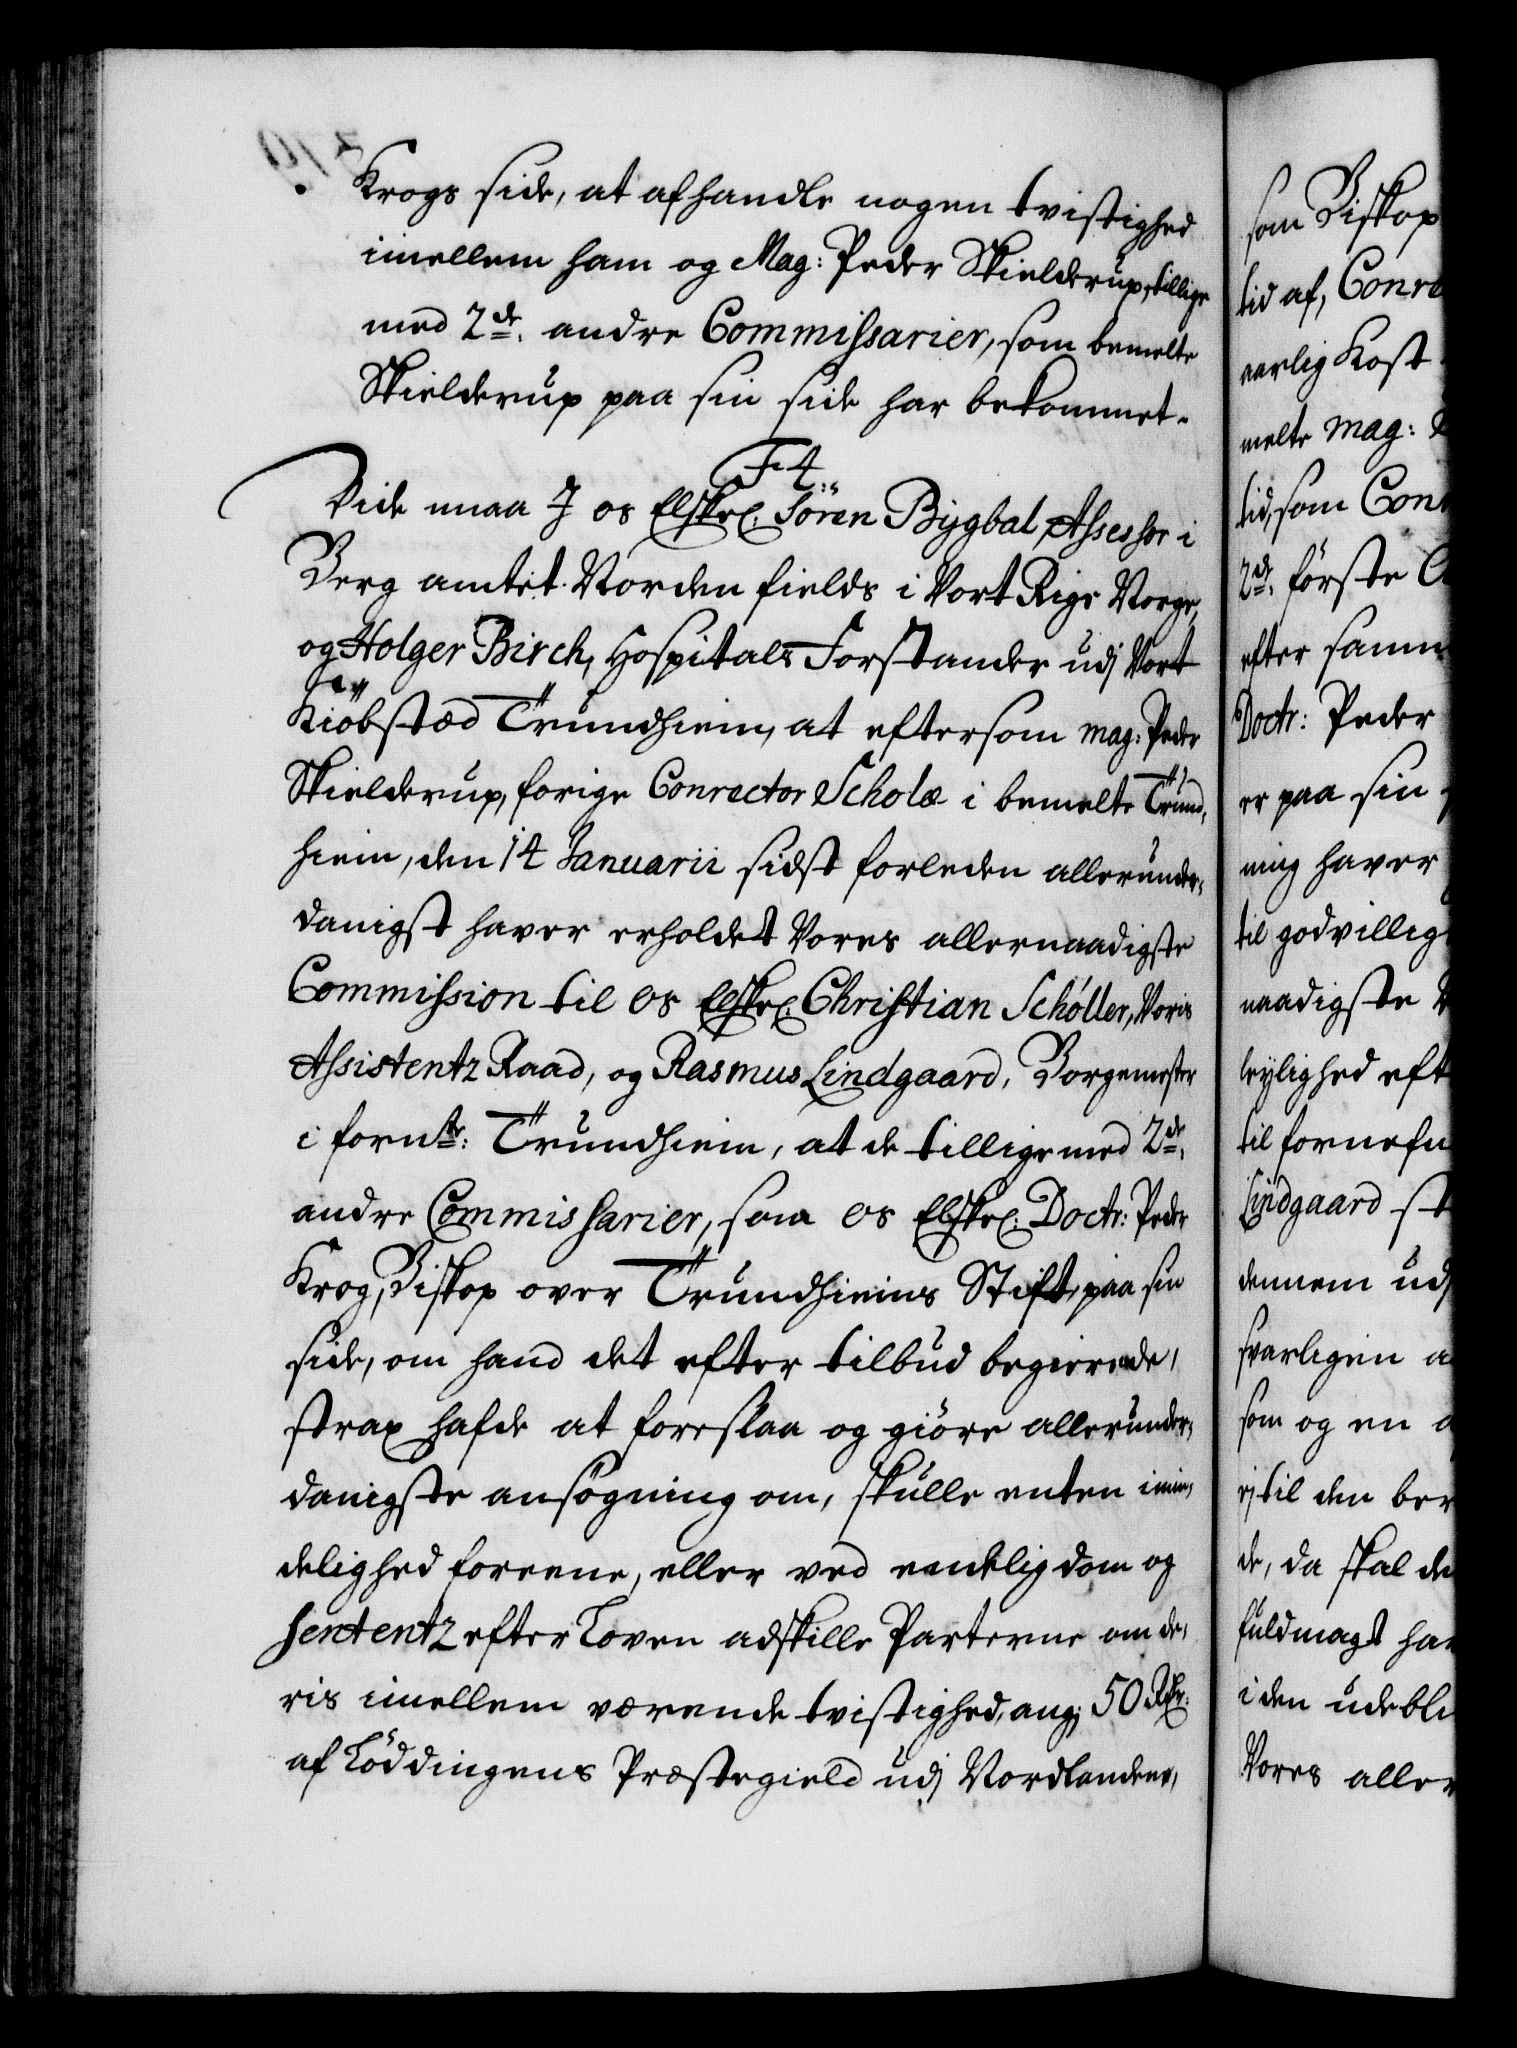 Krogs side, at afhandle nogen tvistighed
imellem ham og Mag: Peder Skielderup, tillige
med 2de. andre Commissarier, som bemelte
Skielderup paa sin side har bekommet.
F 4.
Vide maa I os Elskel. Sören Bygbal, Assessor i
Berg amtet Norden fields i Vort Rige Norge,
og Holger Birch, Hospitals Forstander udj Vort
Kiöbstæd Trundhiem, at eftersom mag: Peder
Skielderup, forige Conrector Scholæ i bemelte Trund,
hiem, den 14 Januarii sidst forleden allerunder,
danigst haver erholdet Vores allernaadigste
Commission til os Elskel. Christian Schöller, Voris
Assistentz Raad, og Rasmus Lindgaard, Borgemester
i fornte: Trundhiem, at de tillige med 2de.
andre Commissarier, som os Elskel. Doctr: Peder
Krog, Biskop over Trundhiems Stift, paa sin
side, om hand det efter tilbud begierede,
strax hafde at foreslaa og giöre allerunder,
danigste ansögning om, skulle enten i min,
delighed foreene, eller ved endelig dom og
sententz efter Loven adskille Parterne om de,
ris imellem værende tvistighed, ang: 50 Rdr:
af Löddingens Præstegield udj Nordlandene,
som Biskop
tid af, Conre
aarlig Kost
melte mag:
tid, som Con
2de. förste
efter samm
Doctr: Peder
er paa sin
ning haver
til godvillig
naadigste
leylighed eft
til fornefn
Lindgaard st
dennem udj
svarligen a
som og en
ej til den ber
de, da skal de
fuldmagt ha
i den udebli
Vores aller